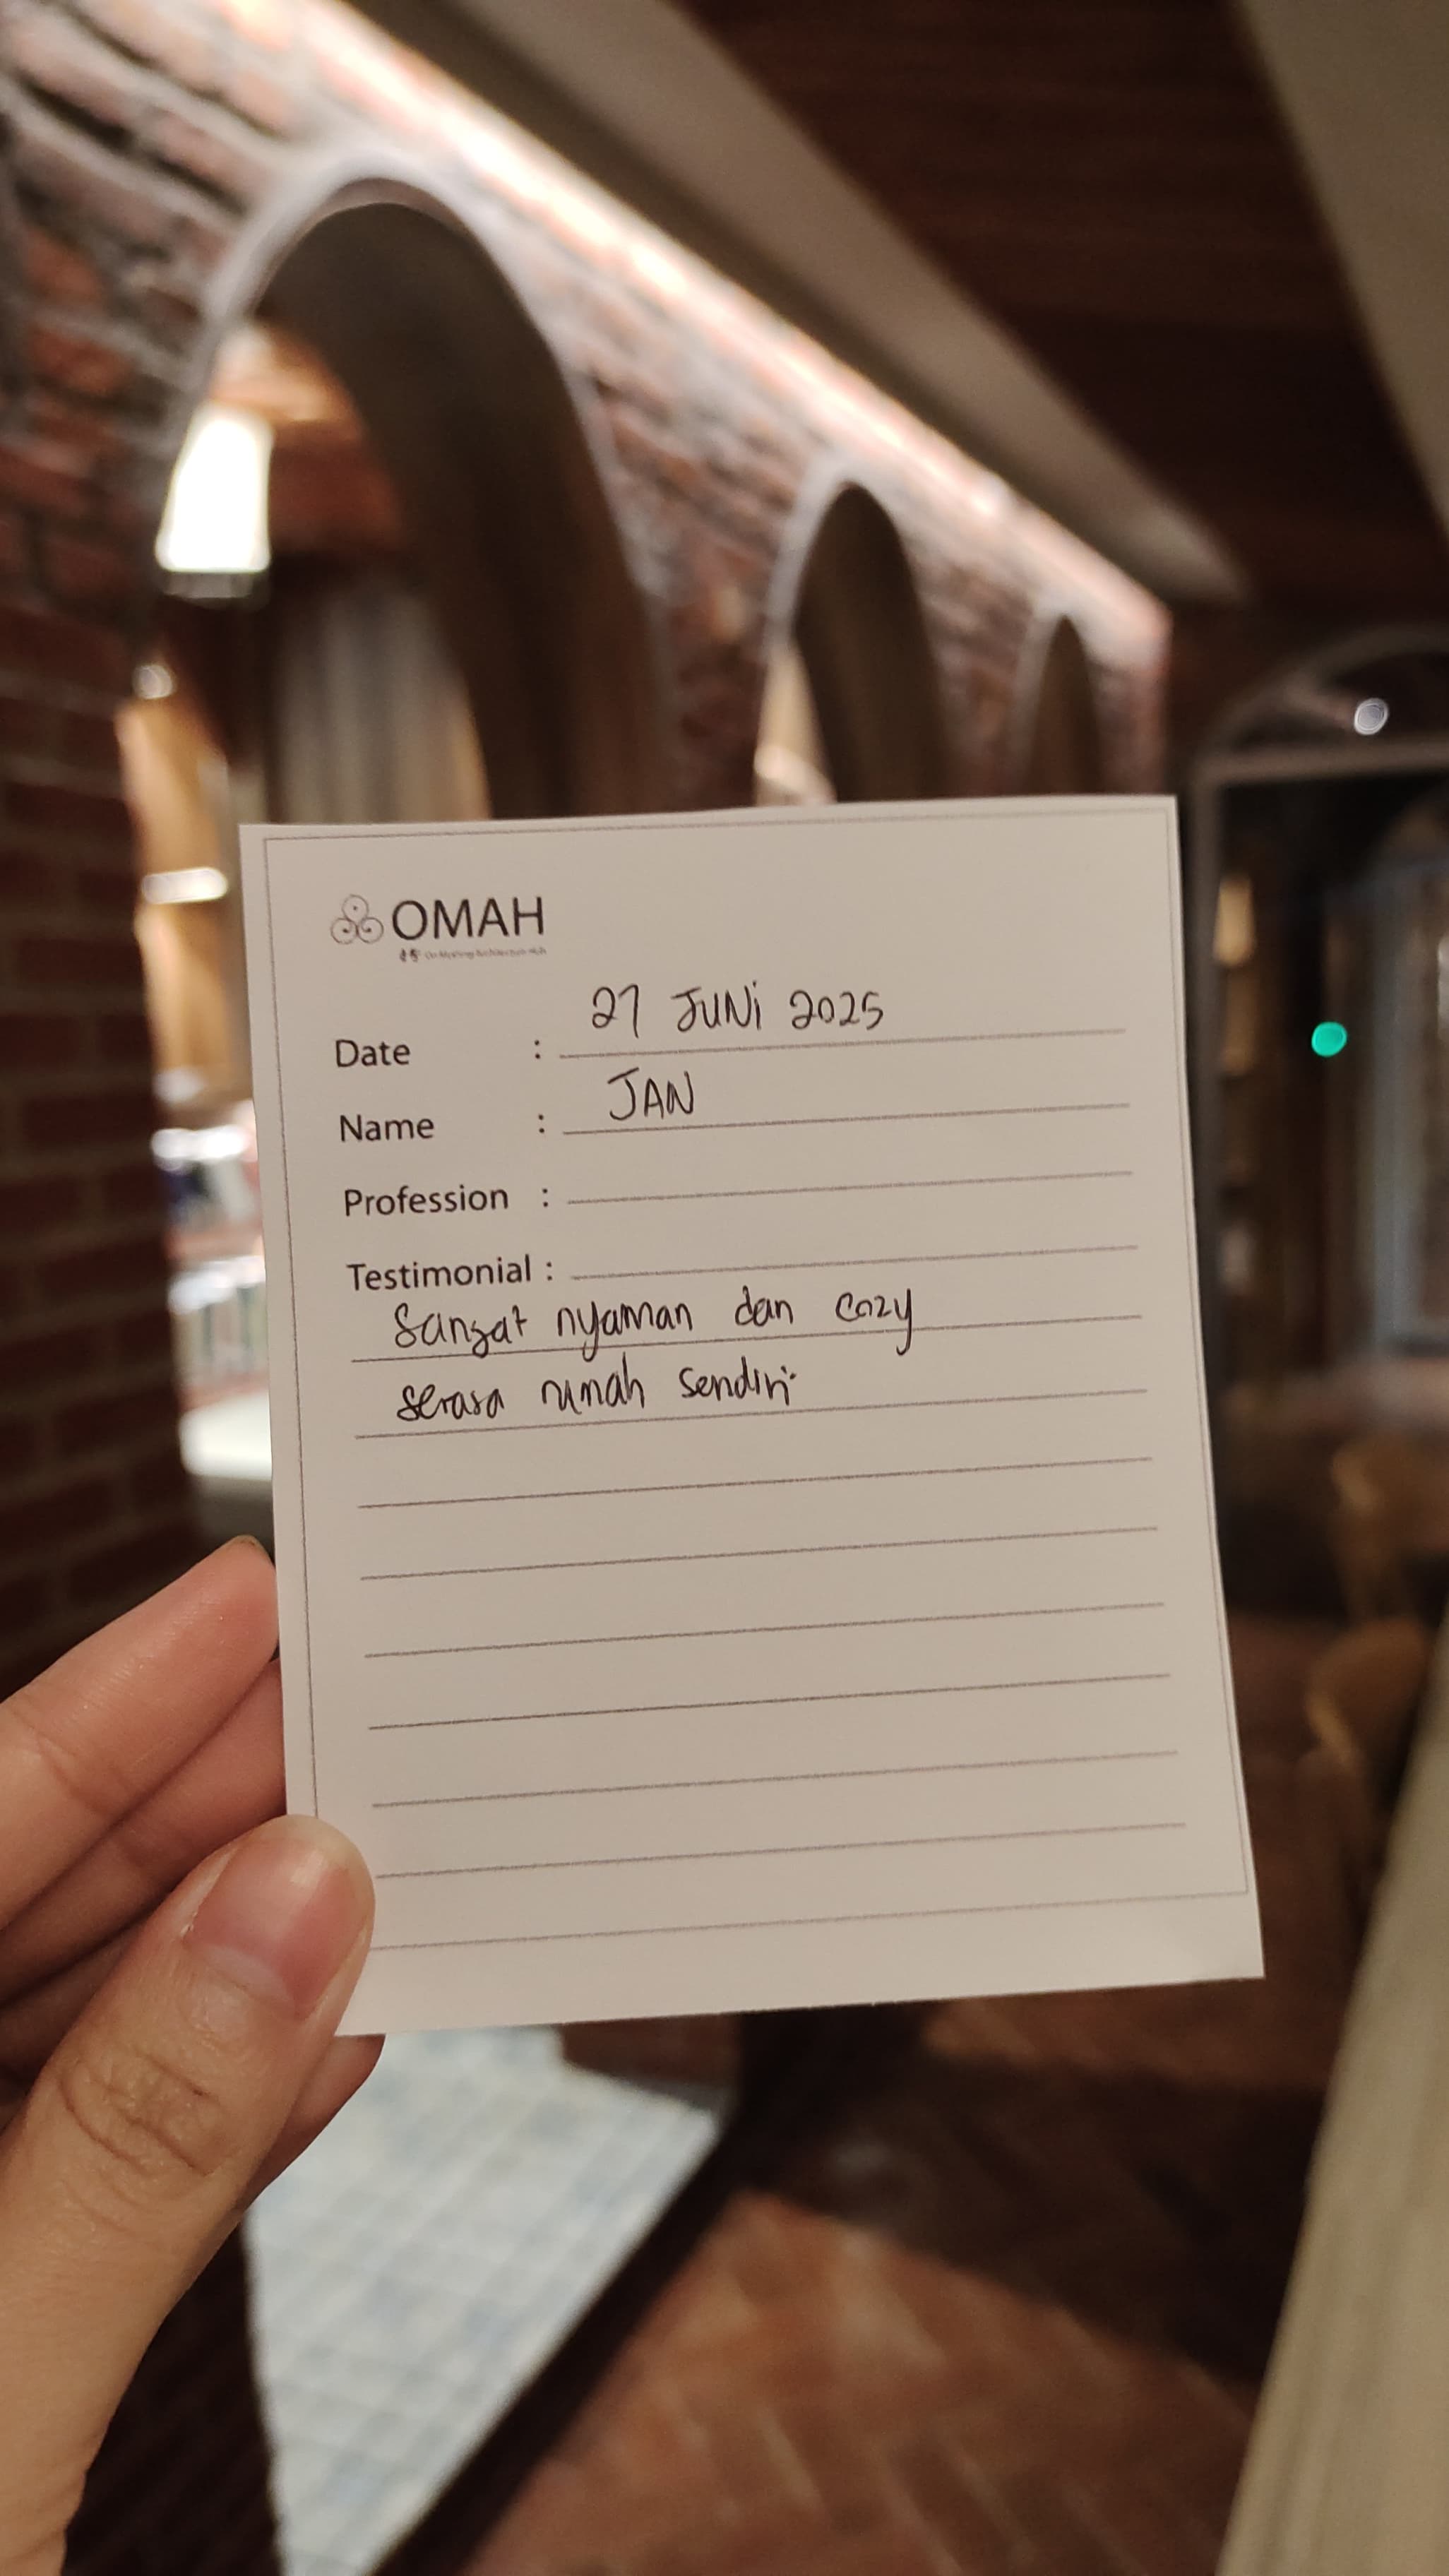 OMAH
Date : 27 JUNi 2025
Name : JAN
Profession :
Testimonial :
Sangat nyaman dan cozy
serasa rumah sendiri